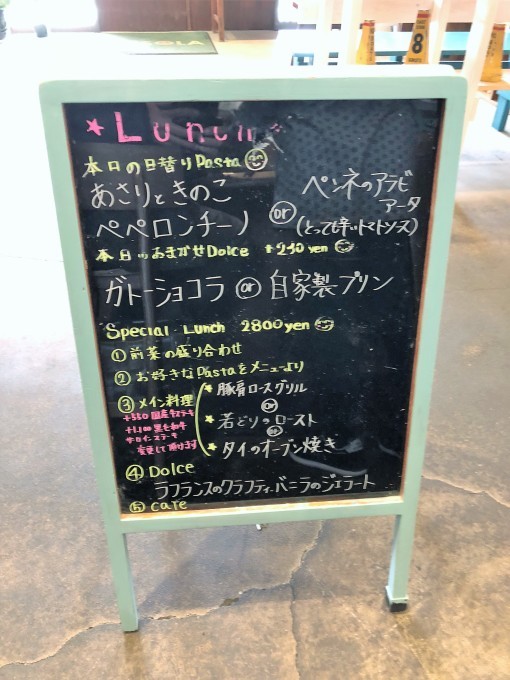 * Lunch *
本日の日替りPasta
あさりときのこ
ペペロンチーノ
or
ペンネのアラビ
アータ
(とっても辛いトマトソース)
本日のおまかせDolce +240yen
ガトーショコラ or 自家製プリン
Special Lunch 2800yen
①前菜の盛り合わせ
②お好きなPastaをメニューより
③メイン料理
+550国産牛ステーキ
+1,100黒毛和牛
サーロインステーキ
変更して頂けます
*豚肩ロースグリル
or
*若どりのロースト
or
*タイのオーブン焼き
④Dolce
ラフランスのクラフティ、バニラのジェラート
⑤cafe
8